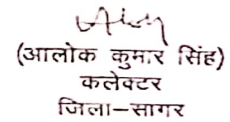 (आलोक कुमार सिंह)
कलेक्टर
जिला-सागर